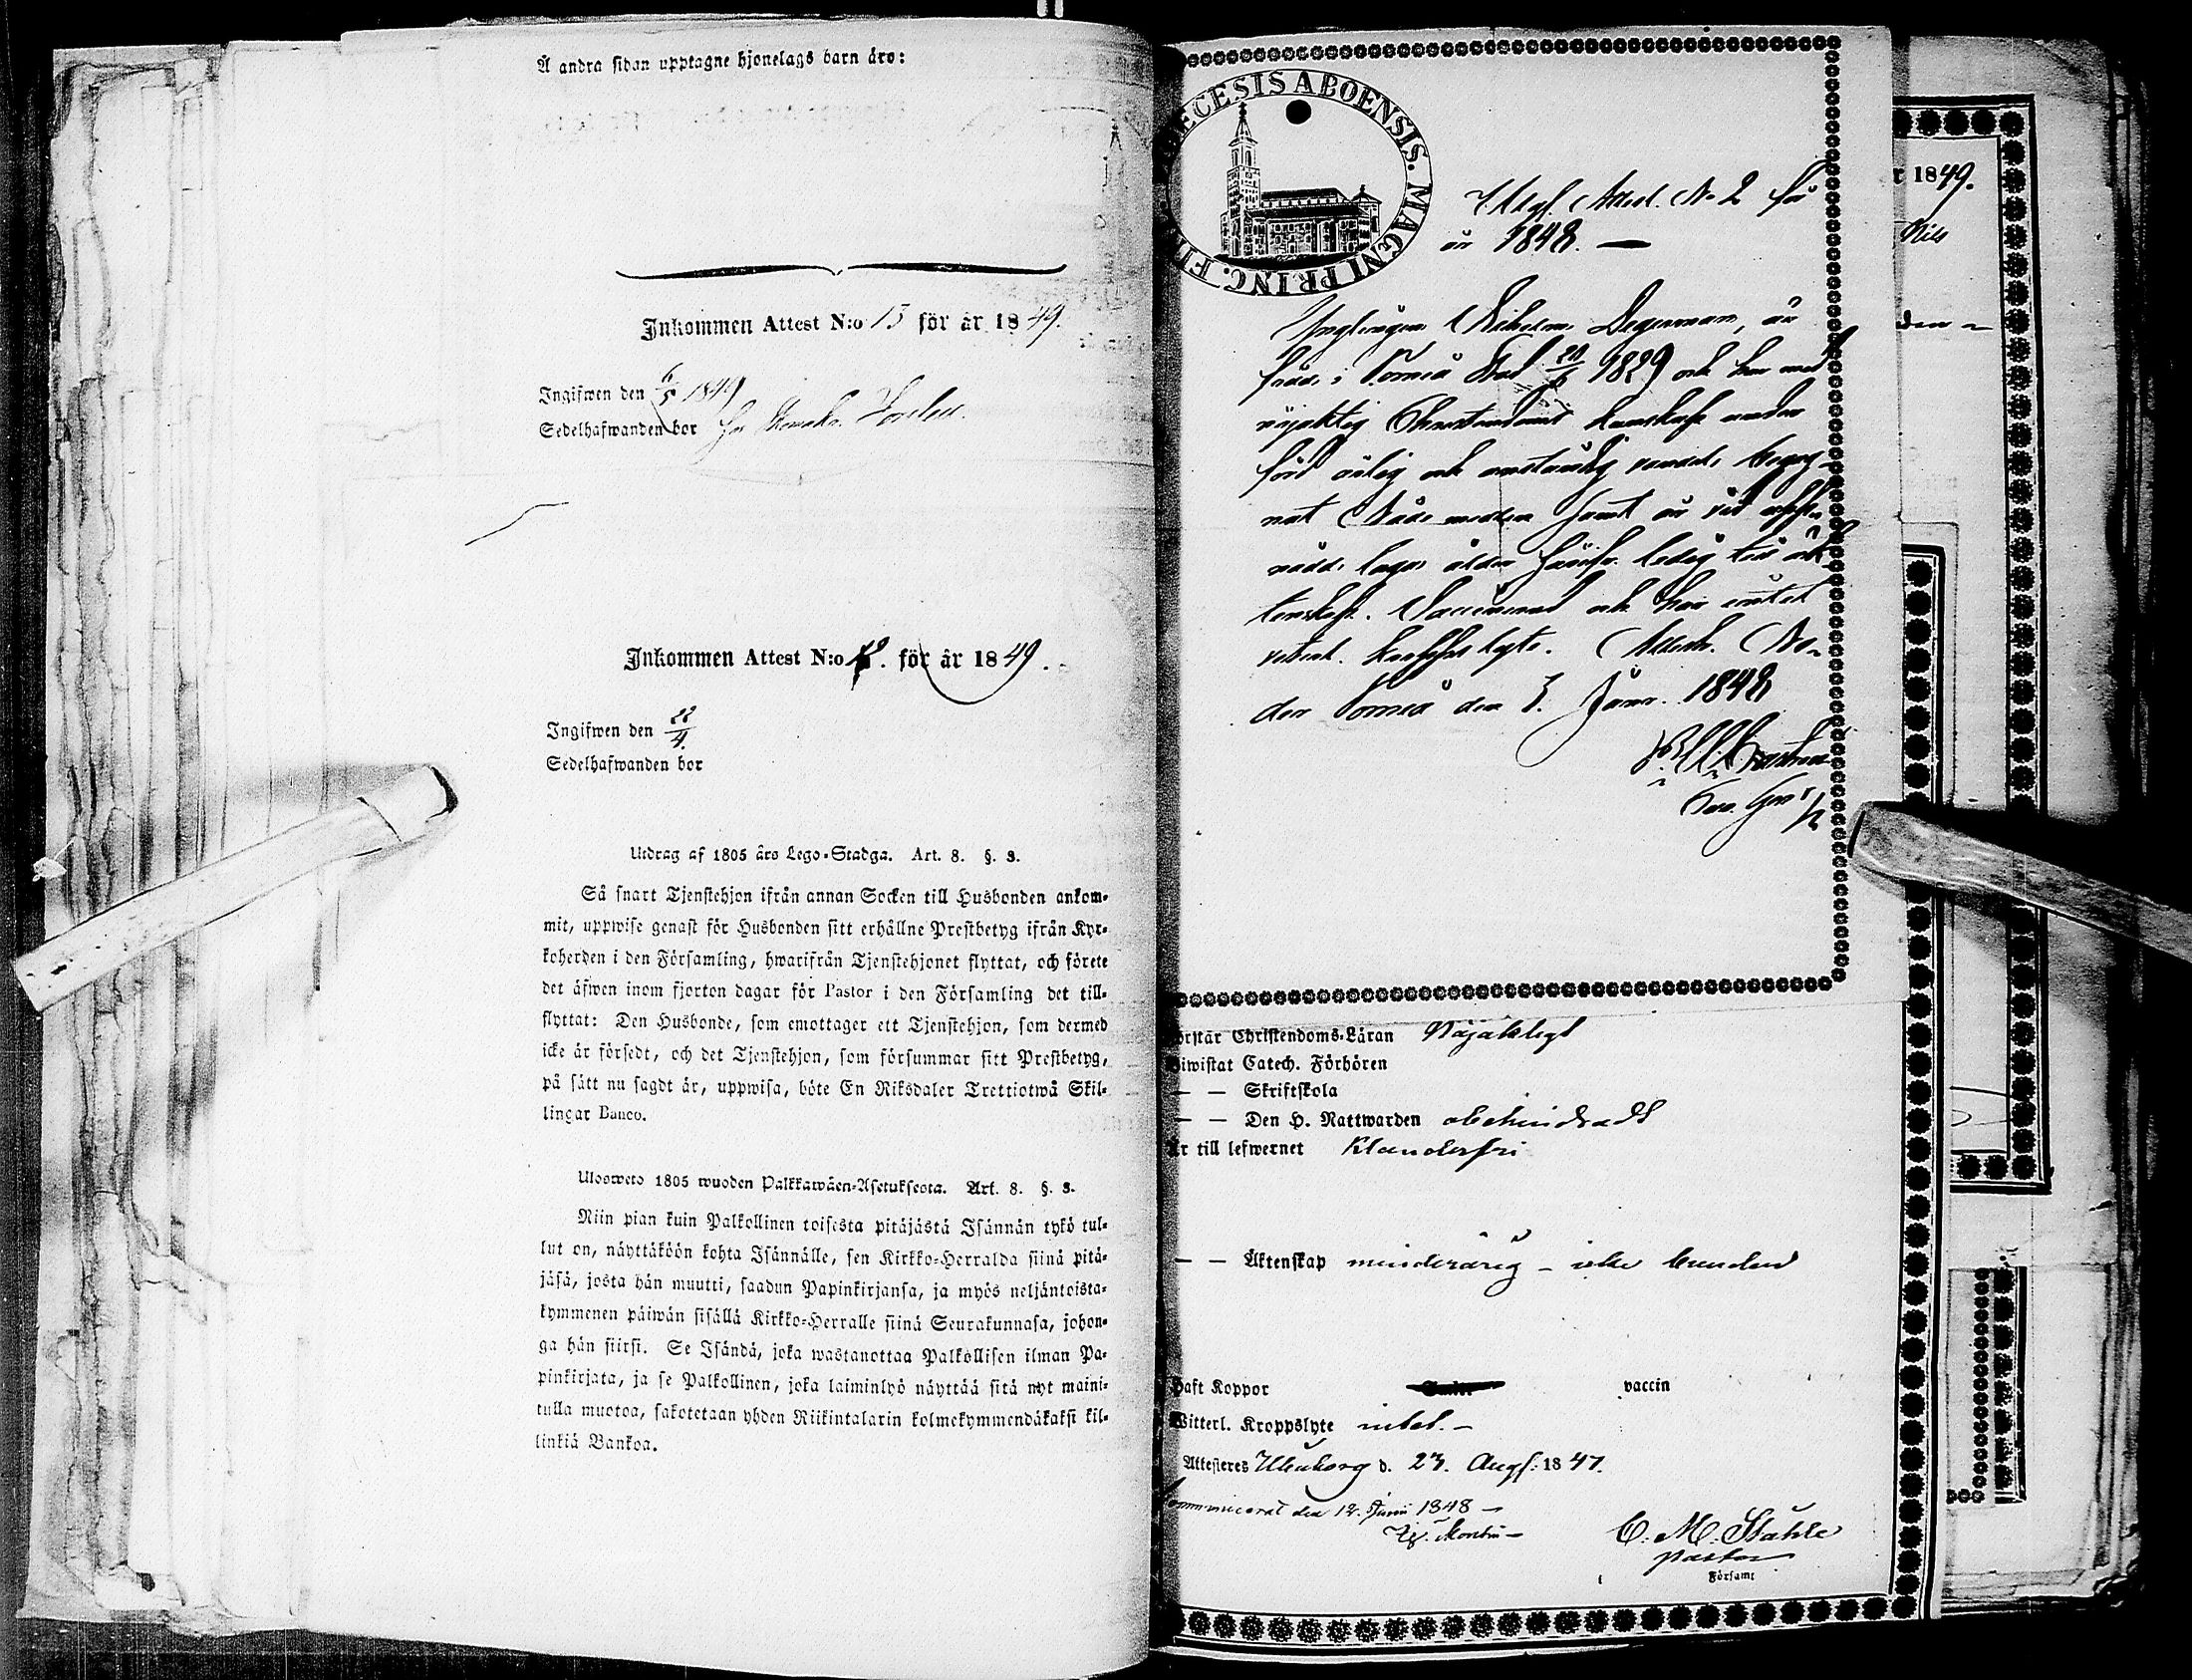 Å andra sidan upptagne hjonelags barn äro:
Inkommen Attest N:o 13 för år 1849.
Ingifwen den 6/5 1849
Sedelhafwanden bor hos
Inkommen Attest N:o för år 1849.
Ingifwen den 22/4.
Sedelhafwanden bor
Utdrag af 1805 års Lego-Stadga. Art. 8. §. 3.
Så snart Tjenstehjon ifrån annan Socken till Husbonden ankom-
mit, uppwise genast för Husbonden sitt erhållne Prestbetyg ifrån Kyr-
koherden i den Församling, hwarifrån Tjenstehjonet flyttat, och förete
det äfwen inom fjorton dagar för Pastor i den Församling det till-
flyttat: Den Husbonde, som emottager ett Tjenstehjon, som dermed
icke är försedt, och det Tjenstehjon, som försummar sitt Prestbetyg,
på sätt nu sagdt är, uppwisa, böte En Riksdaler Trettiotwå Skil-
lingar Banco.
Ulosweto 1805 wuoden Palkkawäen-Asetuksesta. Art. 8. §. 3.
Niin pian kuin Palkollinen toisesta pitäjästä Isännän tykö tul-
lut on, näyttäköön kohta Isännälle, sen Kirkko-Herralda siinä pitä-
jäsä, josta hän muutti, saadun Papinkirjansa, ja myös neljäntoista-
kymmenen päiwän sisällä Kirkko-Herralle siinä Seurakunnasa, johon-
ga hän siirsi. Se Isändä, joka wastanottaa Palkollisen ilman Pa-
pinkirjata, ja se Palkollinen, joka laiminlyö näyttää sitä nyt maini-
tulla muotoa, sakotetaan yhden Riikintalarin kolmekymmendäkaksi kil-
linkiä Bankoa.
ECESIS ABOENSIS. MAGNI PRINC. FI
Utgf. Attest. No 2 för
år 1848. —
Ynglingen Wilhelm Degerman, är
född i Torneå Stad 1829 och har med
nöjaktig Christendoms kunskap under
förd ärlig och anständig vandel begag-
nat Nådemedlen samt är vid uppl
nådd laga ålder ledig till äk
tenskap. Vaccinerad och har intet
veterl. kroppslyte. Attest. Ne-
der Torneå den 3. Januar. 1848
r 1849.
Nils
örstår Christendoms-Läran Nöjaktigt
iwistat Catech. Förhören
— — Skriftskola
— — Den H. Nattwarden obehindradt
r till lefwernet Klanderfri
— — Äktenskap minderårig — icke bunden
aft Koppor vaccin
Witterl. Kroppslyte intet. —
Attesteras Uleåborg d. 23. Aug: 1847.
ommunicerat den 12. Junii 1848 —
C. M. Ståhle
pastor
Församl